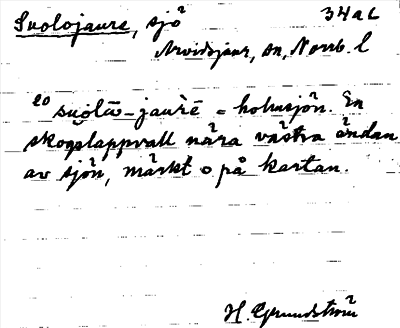 Suolojaure, sjö 34 a c
Arvidsjaur, sn, Norrb. l
20 suo̊lā-jaurē = holmsjön. En
skogslappvall nära västra ändan
av sjön, märkt o på kartan.
H. Grundström